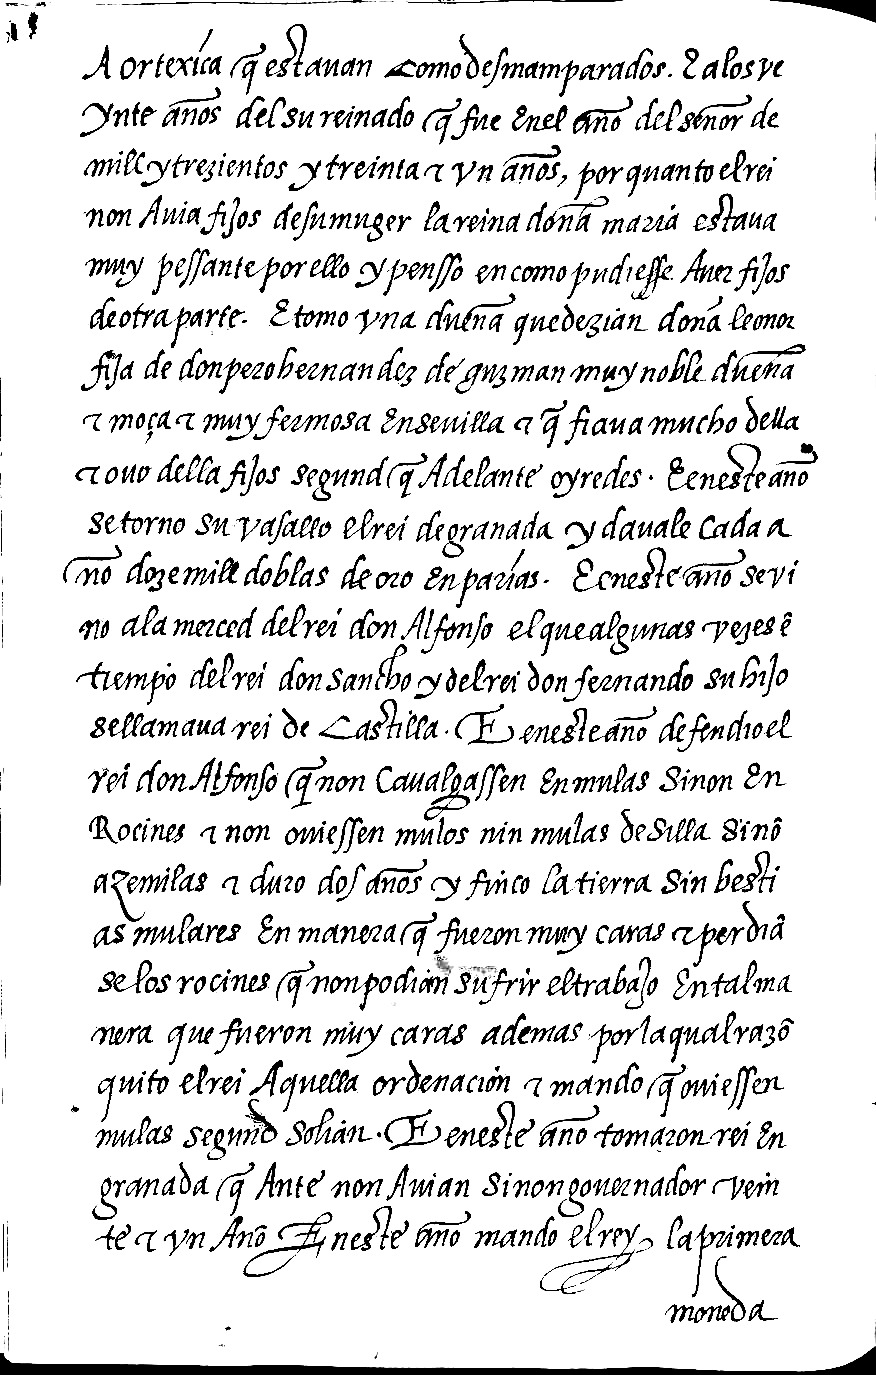 A ortexíca q̃ estauan Como desmamparados. E a los ve
ynte años del su reinado q̃ fue Enel año del señor de
mill y trezientos y treinta τ vn años, por quanto el rei
non Auia fijos de su muger la reina doña maria estaua
muy pessante por ello y pensso en como pudiesse Auer fijos
de otra parte. E tomo vna dueña que dezian doña leonor
fija de don pero hernandez de guzman muy noble dueña
τ moça τ muy fermosa En seuilla τ q̃ fiaua mucho della
τ ouo della fijos segund q̃ Adelante oyredes. E eneste año
se torno su vasallo el rei de granada y dauale Cada a
ño doze mill doblas de oro En parías. E eneste año se vi
no a la merced del rei don Alfonso el que algunas vezes ẽ
tiempo del rei don sancho y del rei don fernando su hijo
se llamaua rei de Castilla. E eneste año defendio el
rei don Alfonso q̃ non Caualgassen En mulas Sinon En
Rocines τ non ouiessen mulos nin mulas de Silla Sinõ
azemilas τ duro dos años y finco la tierra Sin besti
as mulares En manera q̃ fueron muy caras τ perdiã
se los rocines q̃ non podian sufrir el trabajo En tal ma
nera que fueron muy caras ademas por la qual razõ
quito el rei Aquella ordenación τ mando q̃ ouiessen
mulas segund Solian. E eneste año tomaron rei En
granada q̃ Ante non Auian Sinon gouernador vein
te τ vn Año E neste año mando el rey la primera
moneda